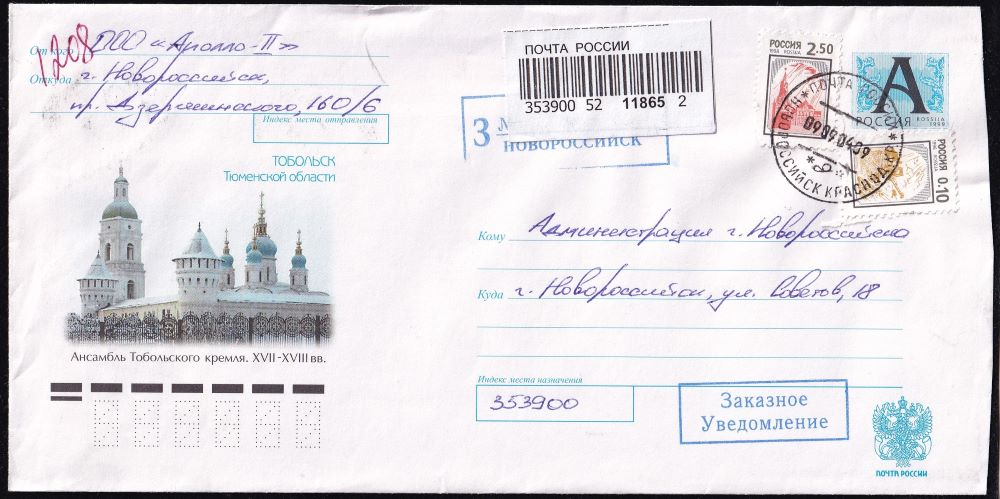 1208
От кого ООО «Аполло-П»
Откуда г. Новороссийск,
пр. Дзержинского, 160/6
Индекс места отправления
ПОЧТА РОССИИ
353900 52 11865 2
З
НОВОРОССИЙСК
РОССИЯ 2.50
1998 · ROSSIJA
А
РОССИЯ
ROSSIJA
1999
РОССИЯ 0.10
1998 ROSSIJA
ПОЧТА РОССИИ
09090409
НОВОРОССИЙСК КРАСНОД.КР.
ТОБОЛЬСК
Тюменской области
Кому Администрация г. Новороссийска
Куда г. Новороссийск, ул. Советов, 18
Ансамбль Тобольского кремля. XVII-XVIII вв.
Индекс места назначения
353900
Заказное
Уведомление
ПОЧТА РОССИИ